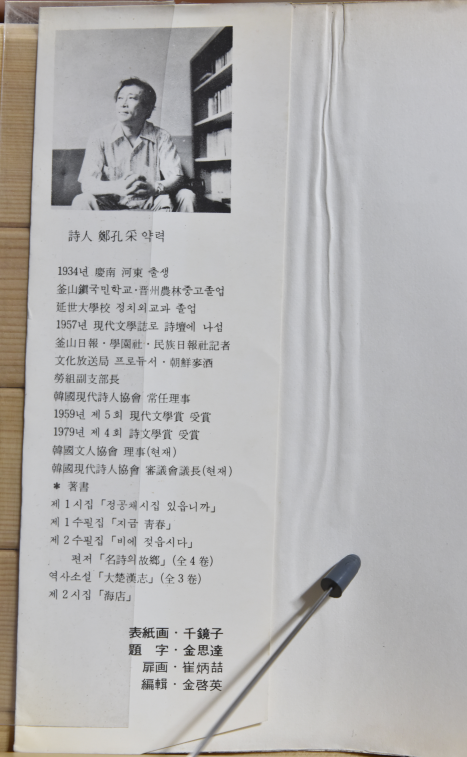 詩人 鄭孔采 약력
1934년 慶南 河東 출생
釜山鎭국민학교·晋州農林중고졸업
延世大學校 정치외교과 졸업
1957년 現代文學誌로 詩壇에 나섬
釜山日報·學園社·民族日報社記者
文化放送局 프로듀서·朝鮮麥酒
勞組副支部長
韓國現代詩人協會 常任理事
1959년 제5회 現代文學賞 受賞
1979년 제4회 詩文學賞 受賞
韓國文人協會 理事(현재)
韓國現代詩人協會 審議會議長(현재)
* 著書
제1시집「정공채시집 있읍니까」
제1수필집「지금 靑春」
제2수필집「비에 젖읍시다」
편저「名詩의故鄕」(全4卷)
역사소설「大楚漢志」(全3卷)
제2시집「海店」
表紙画·千鏡子
題 字·金思達
扉画·崔炳喆
編輯·金啓英